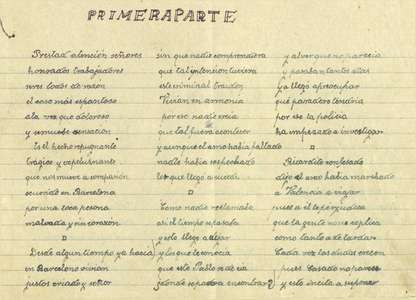 PRIMERA PARTE
Prestad atención señores
honrados trabajadores
seres todos de razon
el caso más espantoso
a la vez que doloroso
y remueve sensación
Es el hecho repugnante
trágico y espeluznante
que nos mueve a compasión
ocurrido en Barcelona
por una tosca persona
malvada y sin corazón
Desde algun tiempo ya hacía
en Barcelona vivian
justos criado y señor
sin que nadie comprendiera
que tal intencion tuviera
este criminal traidor
Vivian en armonia
por eso nadie creia
que tal fuera acontecer
y aunque el amo había faltado
nadie había sospechado
lo que llegó a suceder
Como nadie reclamaba
así el tiempo se pasaba
y esto llegó a dejar
y lo que se conocia
que este Pablo se decia
¿dónde se podra encontrar?
y al ver que no parecia
y pasaban tantos dias
ya llegó a preocupar
que paradero tendria
por eso la policia
ha empezado a investigar
Ricardito confesado
dijo el amo había marchado
a Valencia a viajar
pues a el le perjudica
que la gente no se explica
como tanto ha tardado
Cada vez las dudas crecen
pues Casado no parece
y esto incita a suponer